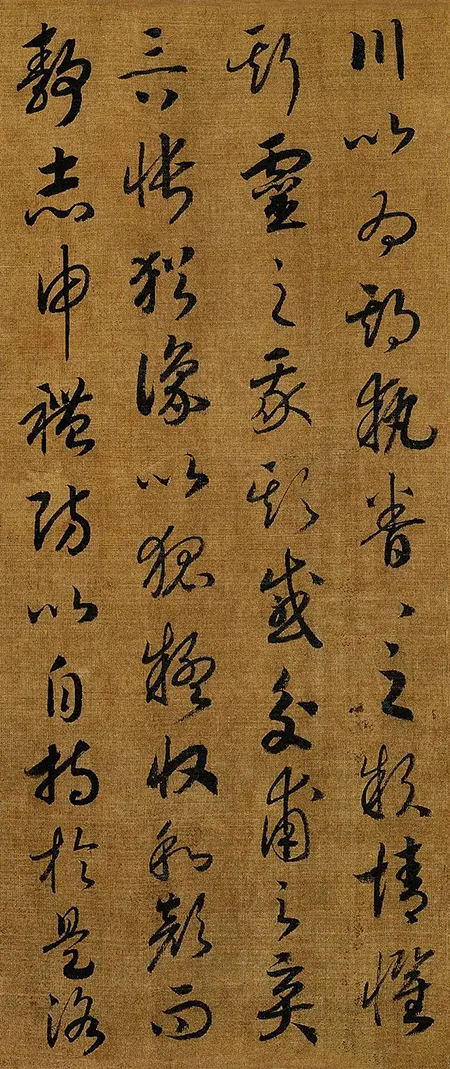 川以為期執眷〻之款情懼
斯靈之我欺感交甫之棄
言悵猶豫以狐疑收和顏而
靜志申禮防以自持於是洛